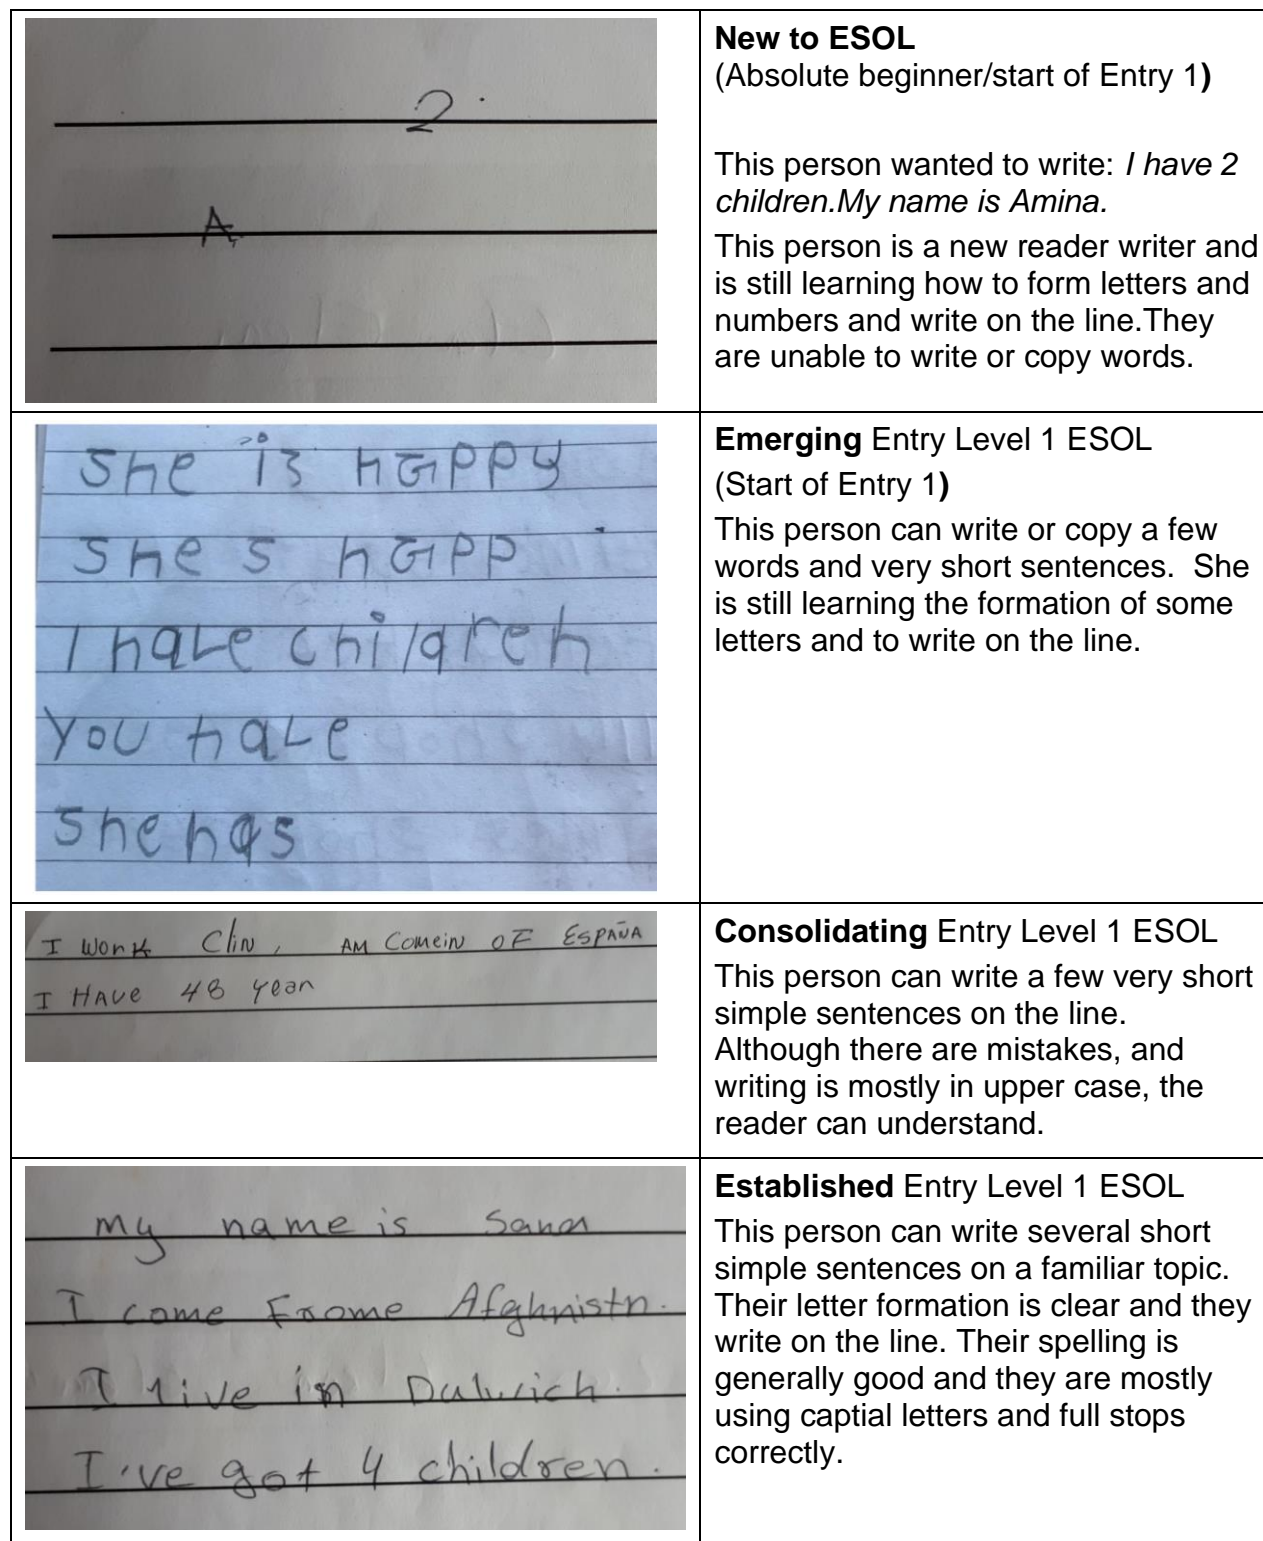 2.
A
New to ESOL
(Absolute beginner/start of Entry 1)
This person wanted to write: I have 2
children.My name is Amina.
This person is a new reader writer and
is still learning how to form letters and
numbers and write on the line.They
are unable to write or copy words.
She is happy
She s happ
I have children
You have
She has
Emerging Entry Level 1 ESOL
(Start of Entry 1)
This person can write or copy a few
words and very short sentences. She
is still learning the formation of some
letters and to write on the line.
I work Clin, AM Comein OF ESPAÑA
I HAve 48 year
Consolidating Entry Level 1 ESOL
This person can write a few very short
simple sentences on the line.
Although there are mistakes, and
writing is mostly in upper case, the
reader can understand.
my name is Sana
I come Frome Afghnistn.
I live in Dulwich.
I've got 4 children.
Established Entry Level 1 ESOL
This person can write several short
simple sentences on a familiar topic.
Their letter formation is clear and they
write on the line. Their spelling is
generally good and they are mostly
using captial letters and full stops
correctly.